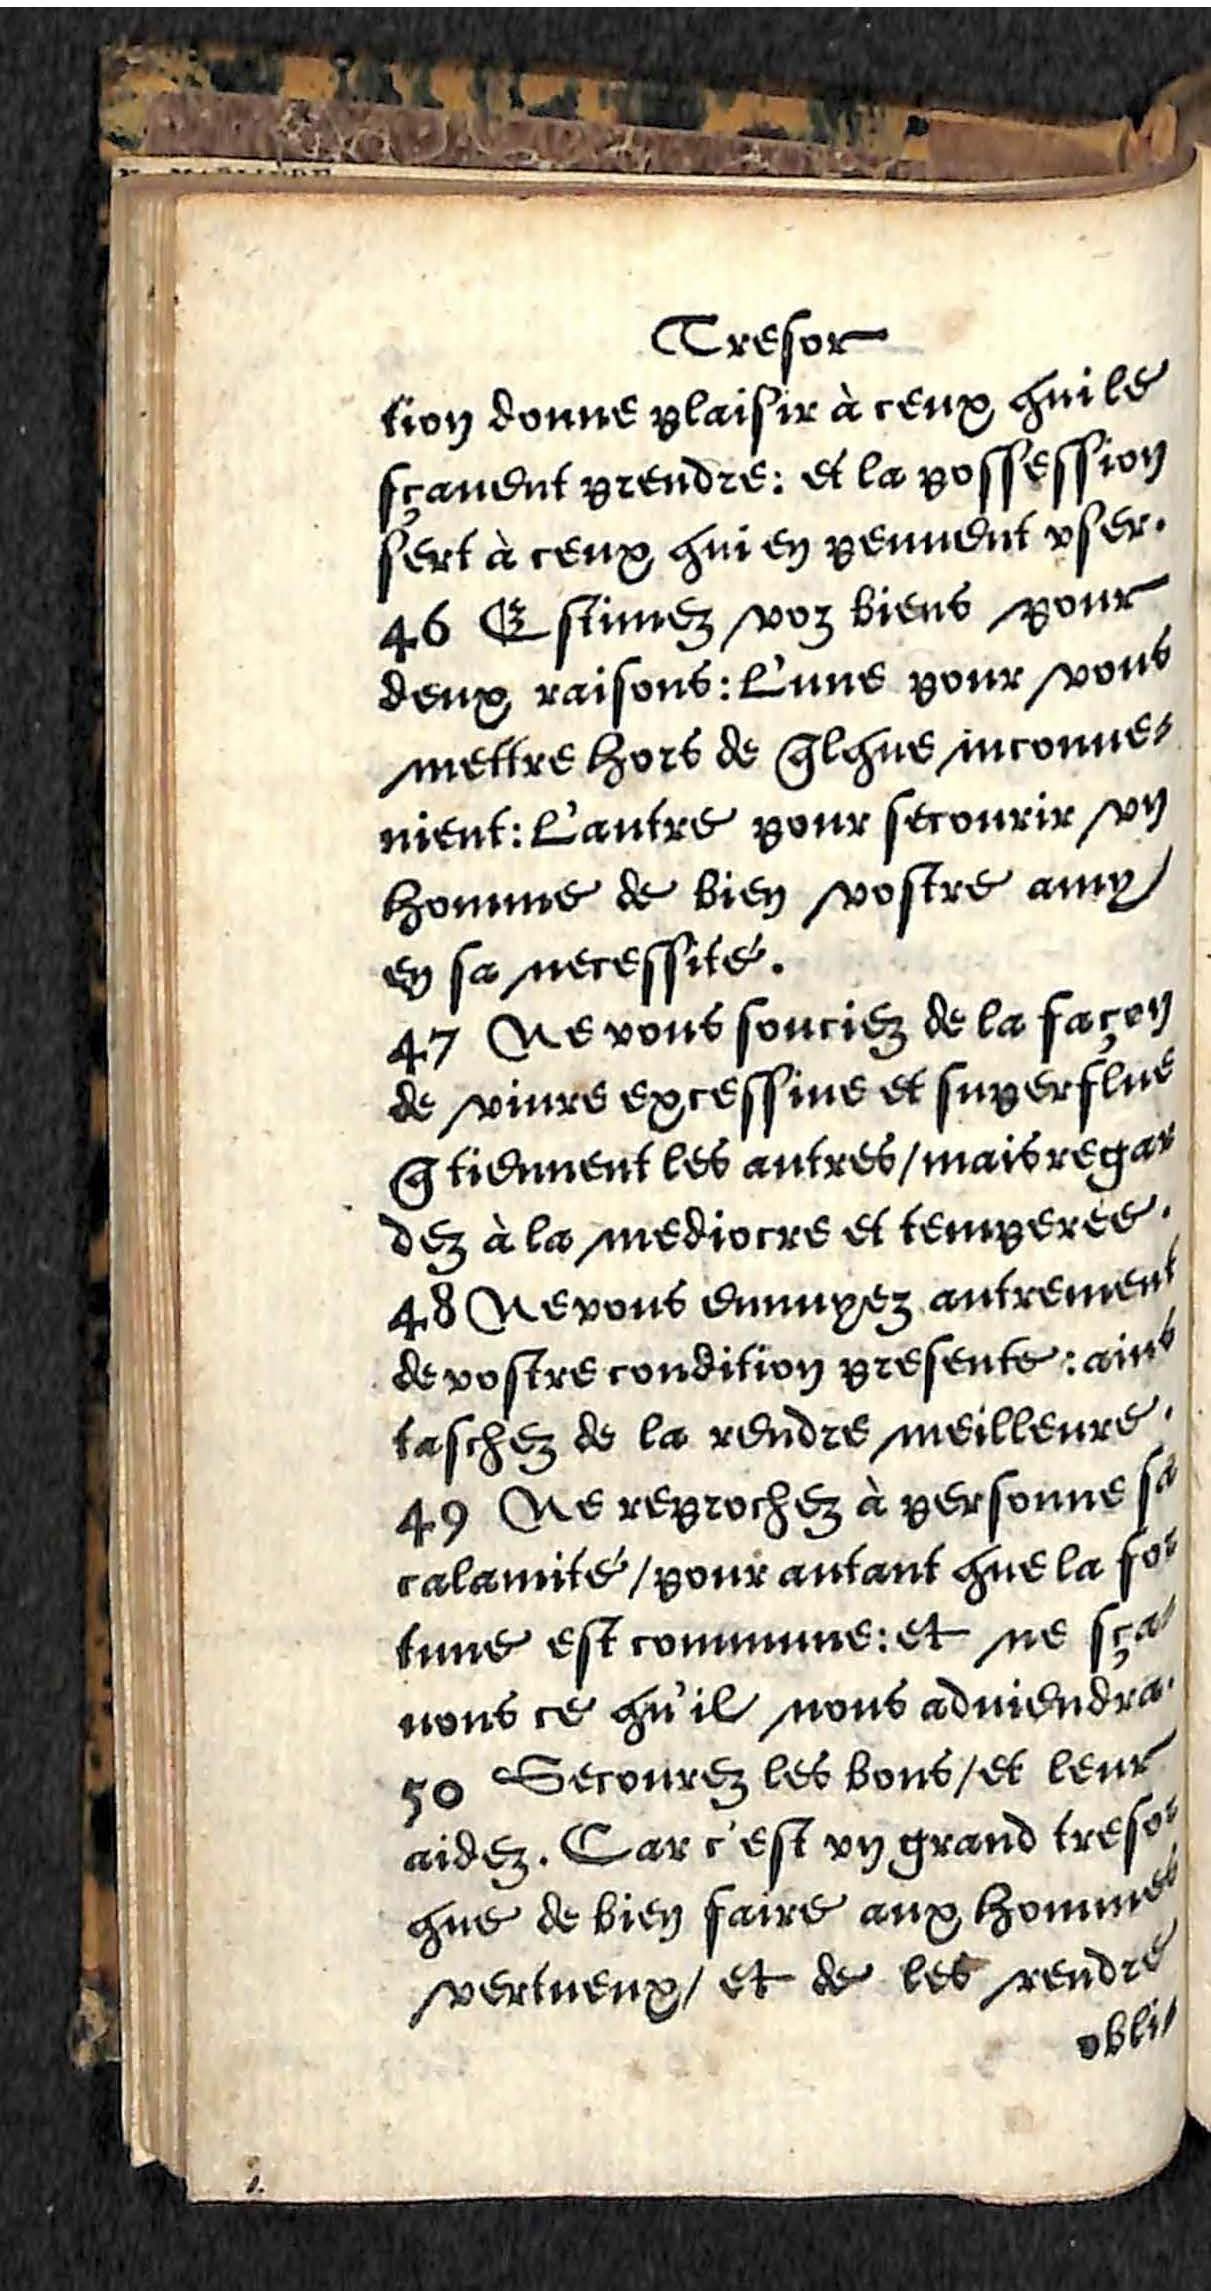 Tresor
tion donne plaisir à ceux qui le
sçauent prendre: et la possession
sert à ceux qui en peuuent vser.
46 Estimez voz biens pour
deux raisons: L'une pour vous
mettre hors de q̃lque inconue-
nient: L'autre pour secourir vn
homme de bien vostre amy/
en sa necessité.
47 Ne vous souciez de la façon
de viure excessiue et superflue
q̃ tiennent les autres/mais regar
dez à la mediocre et temperée.
48 Ne vous ennuyez autrement
de vostre condition presente: ains
taschez de la rendre meilleure.
49 Ne reprochez à personne sa
calamité/pour autant que la for
tune est commune: et ne sça-
uons ce qu'il nous aduiendra.
50 Secourez les bons/et leur
aidez. Car c'est vn grand tresor
que de bien faire aux hommes
vertueux/ et de les rendre
obli-